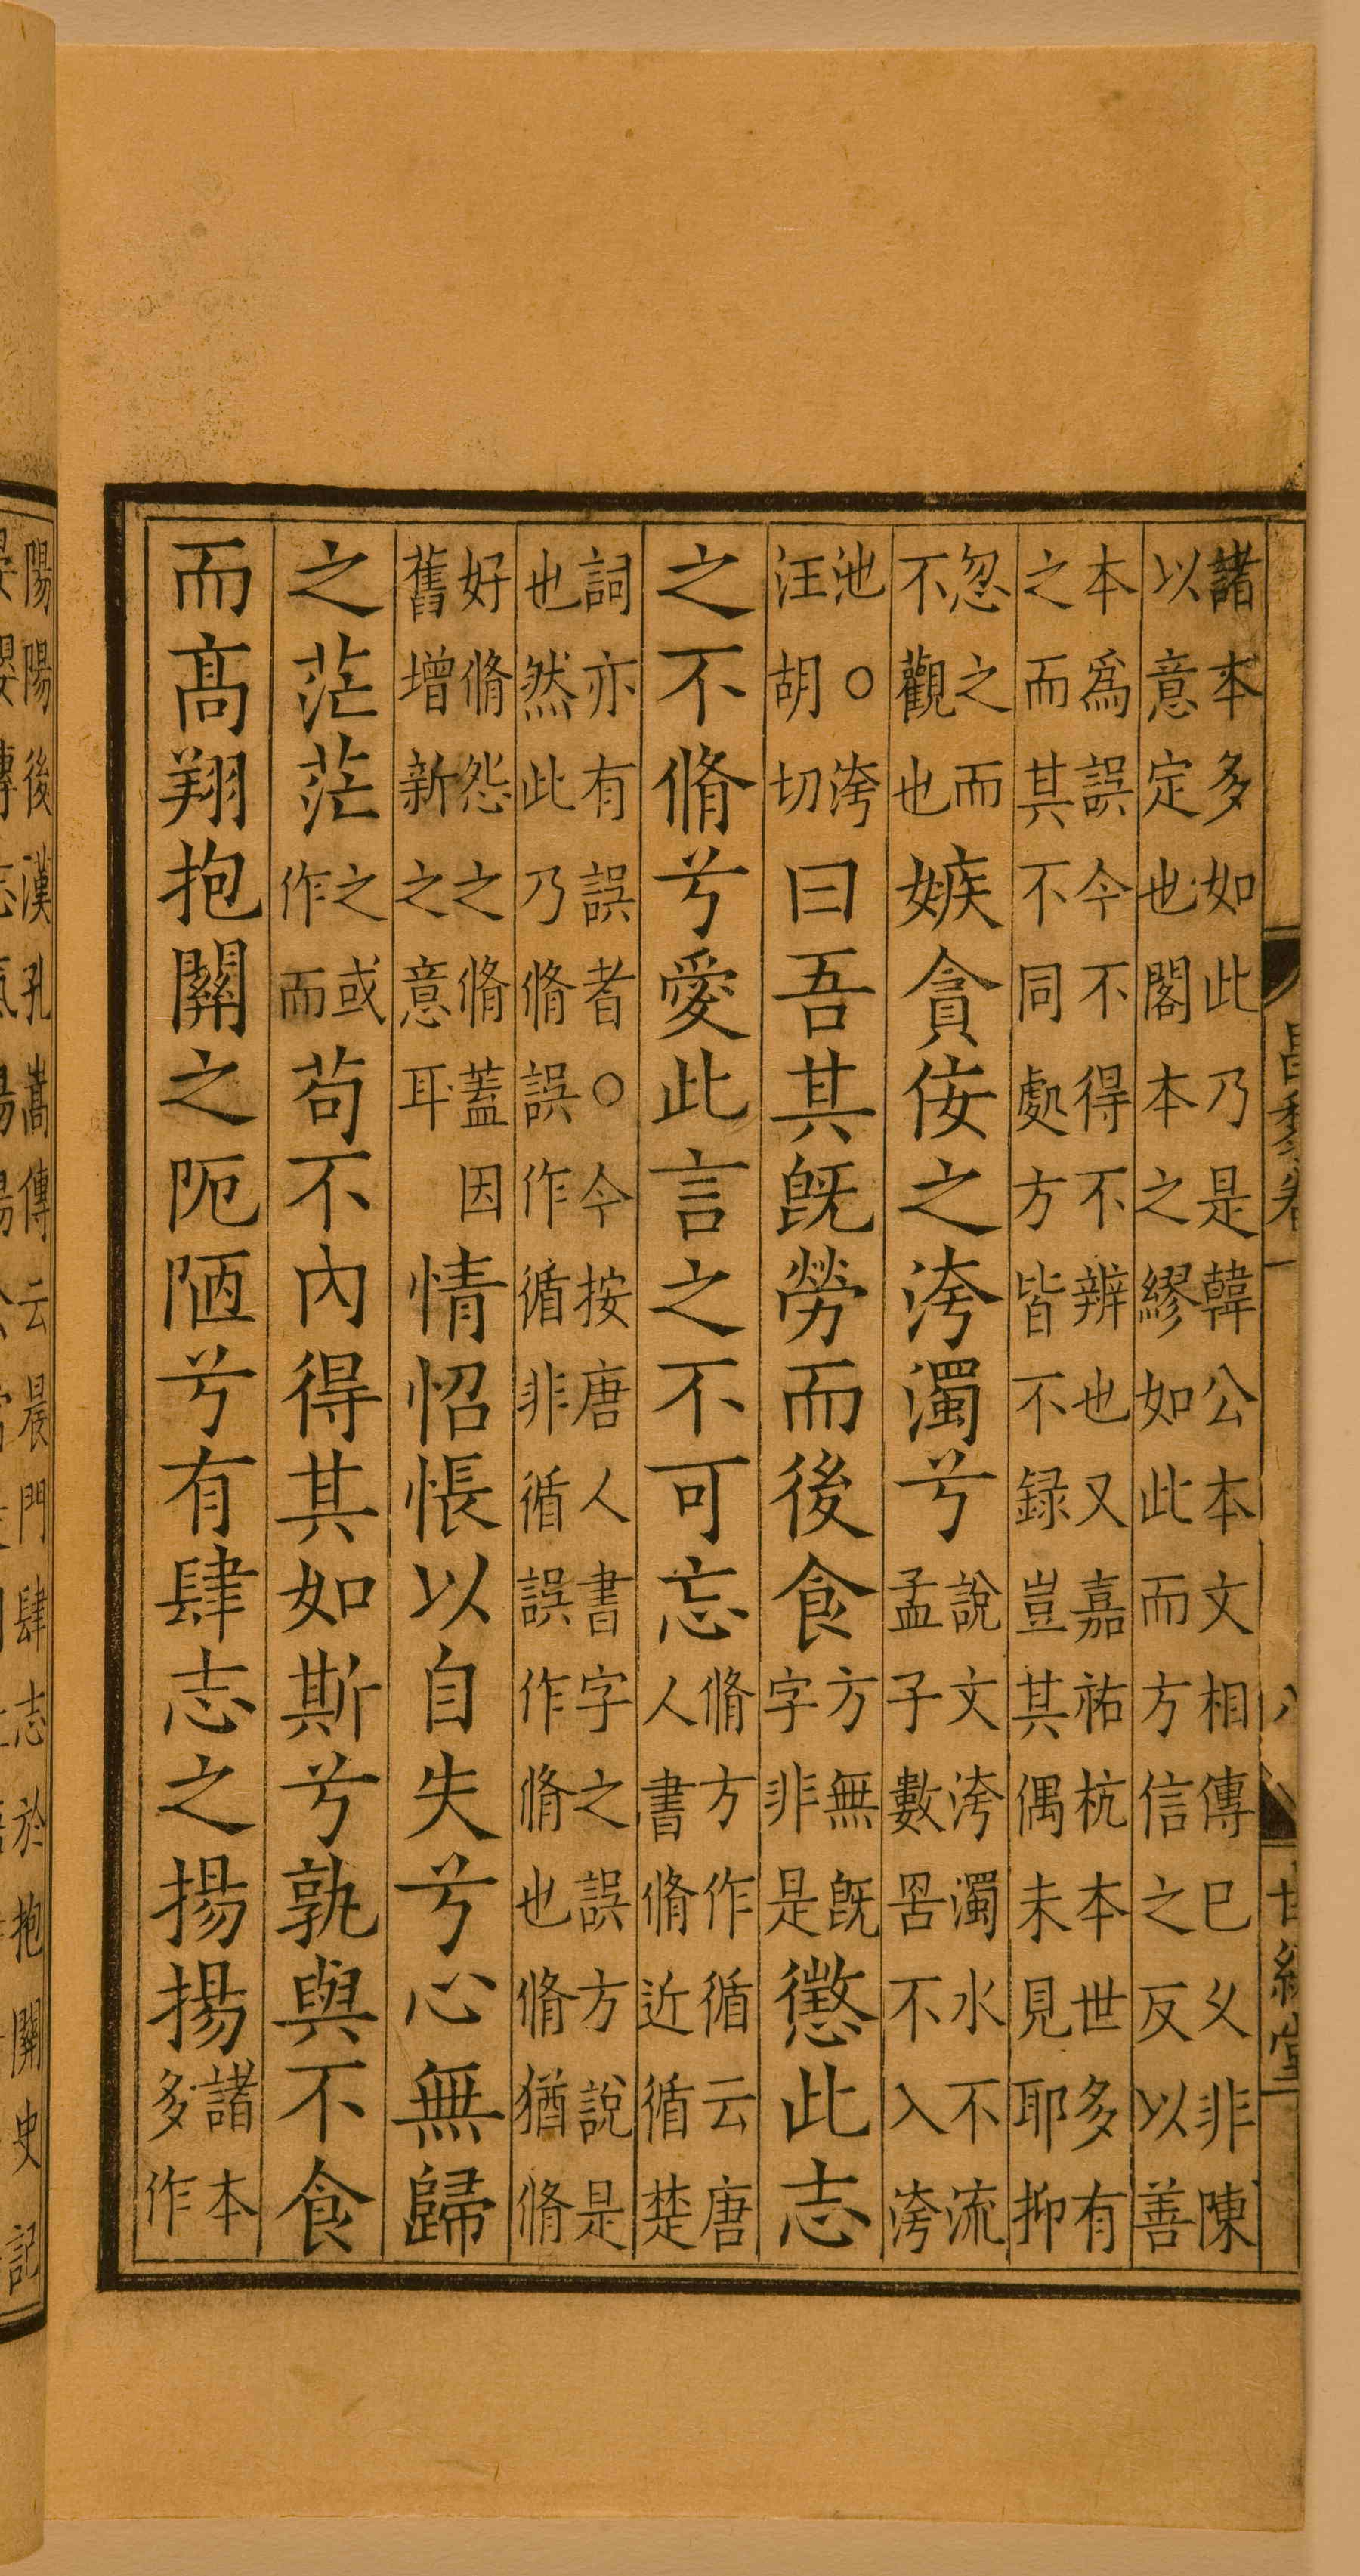 諸本多如此乃是韓公本文相傳已乆非陳
以意定也閣本之繆如此而方信之反以善
本爲誤今不得不辨也又嘉祐杭本世多有
之而其不同處方皆不録豈其偶未見耶抑
忽之而不觀也嫉貪佞之洿濁兮說文洿濁水不流孟子數罟不入洿
池○洿汪胡切曰吾其旣勞而後食方無旣字非是懲此志
之不脩兮愛此言之不可忘脩方作循云唐人書脩近循楚
詞亦有誤者○今按唐人書字之誤方說是
也然此乃脩誤作循非循誤作脩也脩猶脩
好脩怨之脩蓋因舊增新之意耳情怊悵以自失兮心無歸
之茫茫之或作而苟不內得其如斯兮孰與不食
而髙翔抱關之阨陋兮有肆志之揚揚諸本多作
陽陽後漢孔嵩傳云晨門肆志於抱關史記